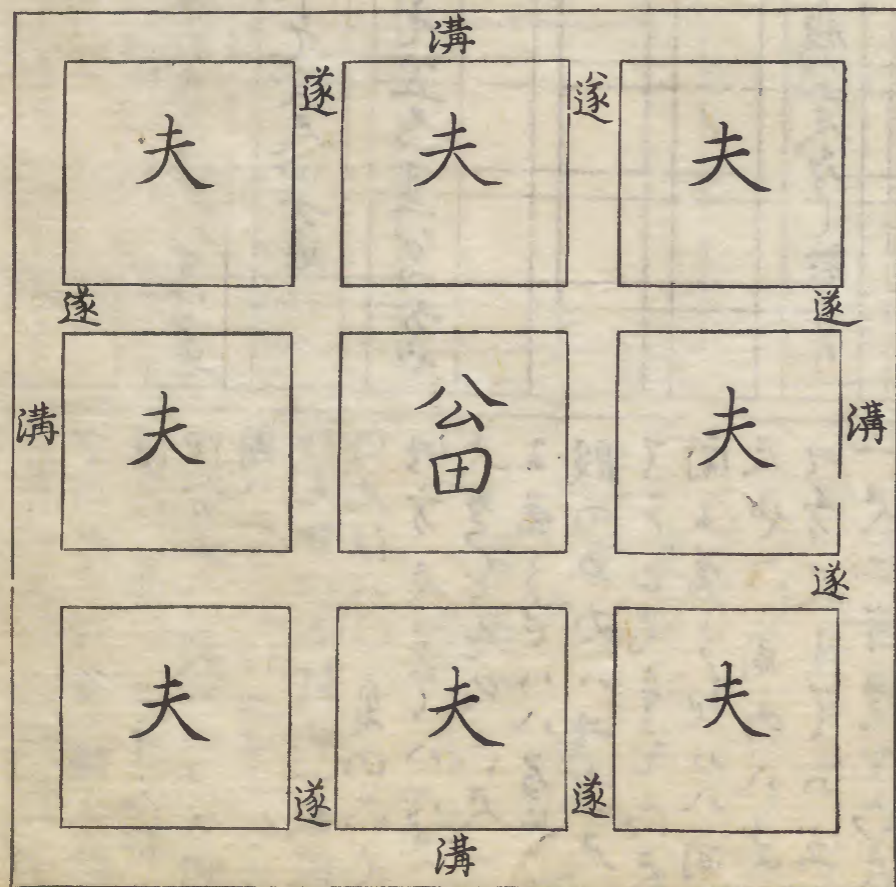 溝
遂 遂
夫 夫 夫
遂 遂
溝 夫 公田 夫 溝
遂
夫 夫 夫
遂 遂
溝